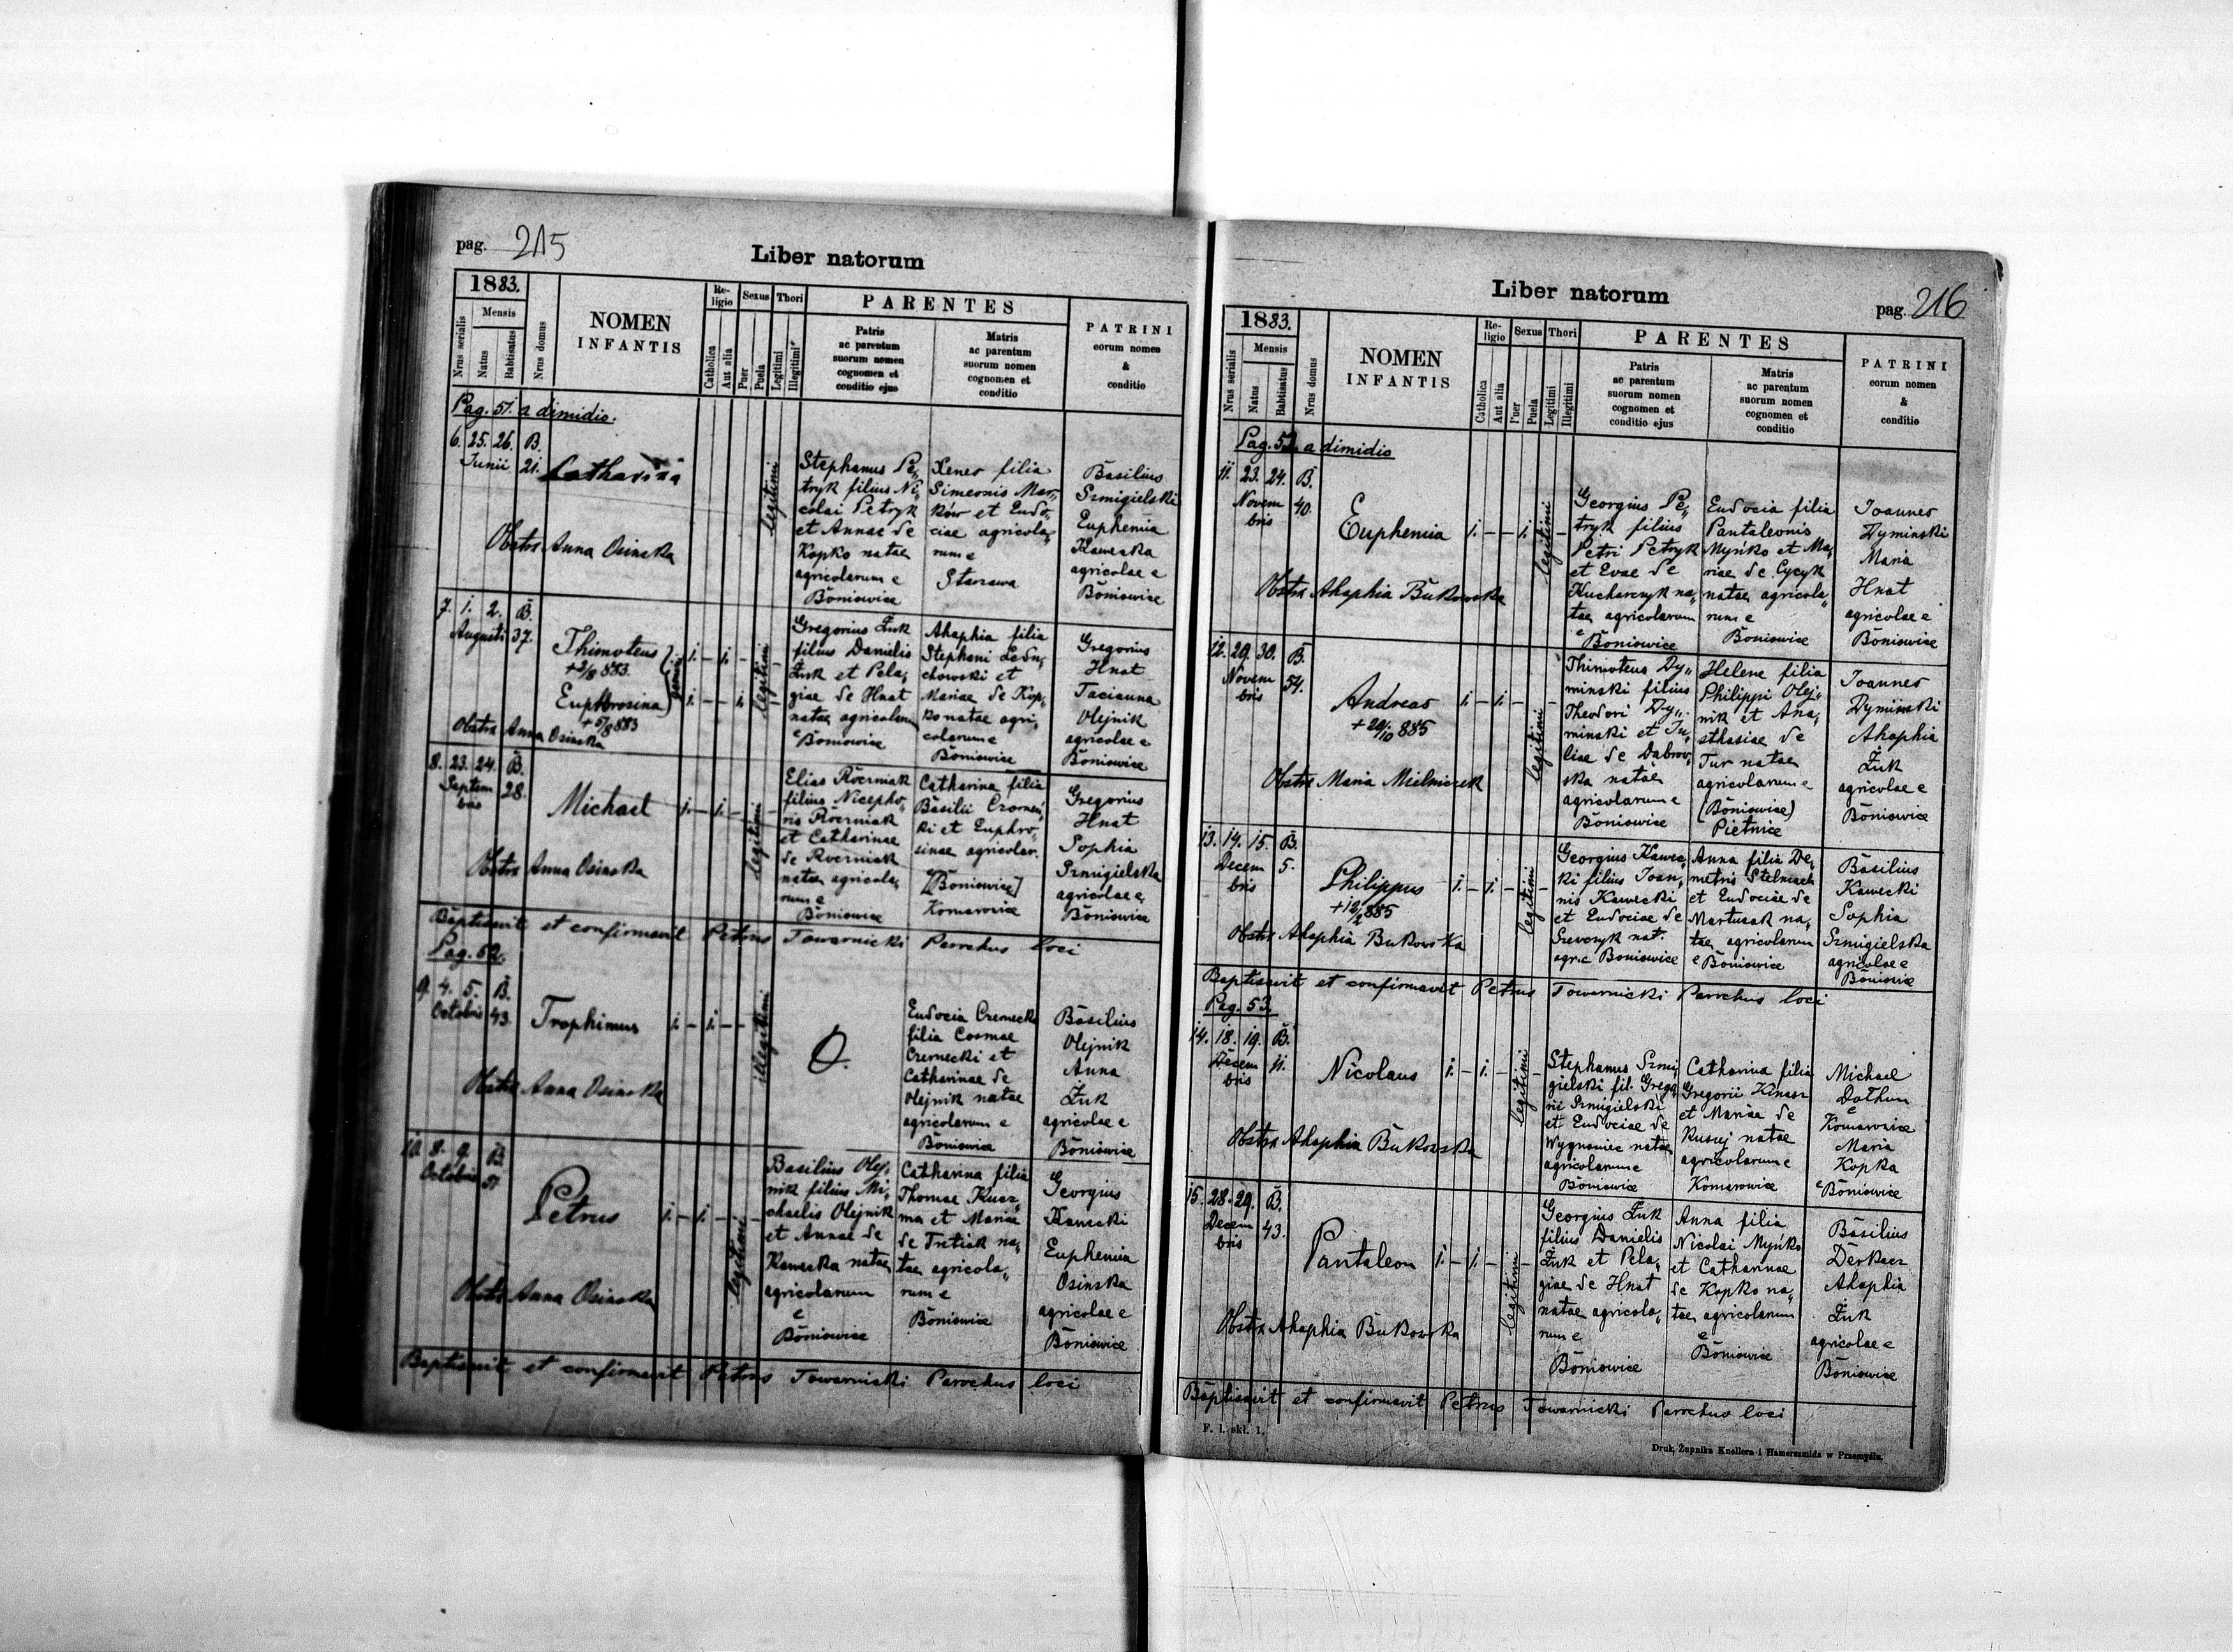 pag. 215
Liber natorum
1883.
Mensis
Nrus serialis
Natus
Babtisatus
Nrus domus
NOMEN
INFANTIS
Re-
ligio
Catholica
Aut alia
Sexus
Puer
Puela
Thori
Legitimi
Illegitimi
PARENTES
Patris
ac parentum
suorum nomen
cognomen et
conditio ejus
Matris
ac parentum
suorum nomen
cognomen et
conditio
PATRINI
eorum nomen
&
conditio
Pag. 51. a dimidio.
6. 25. 26. B.
Junii 21.
Catharina
legitimi
Obstx Anna Osinska
Stephanus Pe„
tryk filius Ni„
colai Petryk
et Annae de
Kopko natae
agricolarum e
Boniowice
Xenes filia
Simeonis Mar„
ków et Eudo„
ciae agricola„
rum e
Starzawa
Basilius
Szmigielski
Euphemia
Kawecka
agricolae e
Boniowice
7. 1. 2. B.
Augusti 37.
Thimoteus
+2/8 883.
Euphrosina
+5/8 883
gemini
i. – i. –
i. – – i.
legitimi
Obstx Anna Osinska
Gregorius Żuk
filius Danielis
Żuk et Pela„
giae de Hnat
natae agricolarum
e Boniowice
Ahaphia filia
Stephani Ledu„
chowski et
Mariae de Kop„
ko natae agri„
colarum e
Boniowice
Gregorius
Hnat
Tacianna
Olejnik
agricolae e
Boniowice
8. 23. 24. B.
Septem
bris 28.
Michael
i. – i. –
legitimi
Obstx Anna Osinska
Elias
filius Nicepho„
ris
et Catharinae
de
natae agricola„
rum e
Boniowice
Catharina filia
Basilii
ki et Euphro„
sinae agricolar.
[Boniowice]
Komarowice
Gregorius
Hnat
Sophia
Szmigielska
agricolae e
Boniowice
Baptisavit et confirmavit Petrus Towarnicki Parochus loci
Pag. 52.
9. 4. 5. B.
Octobris 43.
Trophimus
i. – i. – –
illegitimi
O.
Obstx Anna Osinska
Eudocia Czernecka
filia Cosmae
Czernecki et
Catharinae de
Olejnik natae
agricolarum e
Boniowice
Basilius
Olejnik
Anna
Żuk
agricolae e
Boniowice
10. 8. 9. B.
Octobris 51.
Petrus
i. – i. – –
legitimi
Obstx Anna Osinska
Basilius Olej„
nik filius Mi„
chaelis Olejnik
et Annae de
Kawecka natae
agricolarum
e
Boniowice
Catharina filia
Thomae Kucz„
ma et Mariae
de Tretiak na„
tae agricola„
rum e
Boniowice
Georgius
Kawecki
Euphemia
Osinska
agricolae e
Boniowice
Baptisavit et confirmavit Petrus Towarnicki Parochus loci
Liber natorum
pag. 216
1883.
Mensis
Nrus serialis
Natus
Babtisatus
Nrus domus
NOMEN
INFANTIS
Re-
ligio
Catholica
Aut alia
Sexus
Puer
Puela
Thori
Legitimi
Illegitimi
PARENTES
Patris
ac parentum
suorum nomen
cognomen et
conditio ejus
Matris
ac parentum
suorum nomen
cognomen et
conditio
PATRINI
eorum nomen
&
conditio
Pag. 52. a dimidio
11. 23. 24. B.
Novem
bris 40.
Euphemia
i. – – i.
legitimi
Obstx Ahaphia Bukowska
Georgius Pe„
tryk filius
Petri Petryk
et Evae de
Kucharczyk na„
tae agricolarum
e Boniowice
Eudocia filia
Pantaleonis
Myńko et Ma„
riae de Cycyk
natae agricola„
rum e
Boniowice
Joannes
Dyminski
Maria
Hnat
agricolae e
Boniowice
12. 29. 30. B.
Novem
bris 54.
Andreas
+29/10 885
i. – i. – –
legitimi
Obstx Maria Mielniczek
Thimoteus Dy„
minski filius
Theodori Dy„
minski et Ju„
liae de Dabrow„
ska natae
agricolarum e
Boniowice
Helene filia
Philippi Olej„
nik et Ana„
sthasiae de
Tur natae
agricolarum e
(Boniowice)
Pietnice
Joannes
Dyminski
Ahaphia
Żuk
agricolae e
Boniowice
13. 14. 15. B.
Decem
bris 5.
Philippus
+12/2 885
i. – i. – –
legitimi
Obstx Ahaphia Bukowska
Georgius Kawec„
ki filius Joan„
nis Kawecki
et Eudociae de
Szewczyk nat.
agr. e Boniowice
Anna filia De„
metris Stelmach
et Eudociae de
Martuszak na„
tae agricolarum
e Boniowice
Basilius
Kawecki
Sophia
Szmigielska
agricolae e
Boniowice
Baptisavit et confirmavit Petrus Towarnicki Parochus loci
Pag. 53.
14. 18. 19. B.
Decem
bris 11.
Nicolaus
i. – i. – –
legitimi
Obstx Ahaphia Bukowska
Stephanus Szmi„
gielski fil. Grego„
rii Szmigielski
et Eudociae de
Wygnaniec natae
agricolarum e
Boniowice
Catharina filia
Gregorii Kinasz
et Mariae de
Kusyj natae
agricolarum e
Komarowice
Michael
Dothun
e
Komarowice
Maria
Kopka
e Boniowice
15. 28. 29. B.
Decem
bris 43.
Pantaleon
i. – i. – –
legitimi
Obstx Ahaphia Bukowska
Georgius Żuk
filius Danielis
Żuk et Pela„
giae de Hnat
natae agricola„
rum e
Boniowice
Anna filia
Nicolai Myńko
et Catharinae
de Kopko na„
tae agricolarum
e
Boniowice
Basilius
Derkacz
Ahaphia
Żuk
agricolae e
Boniowice
Baptisavit et confirmavit Petrus Towarnicki Parochus loci
F. l. skł. 1.
Druk. Żupnika Knollera i Hamerszmida w Przemyślu.